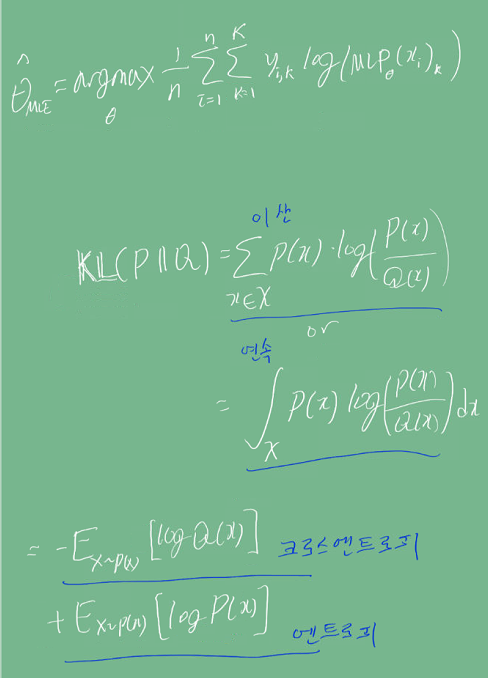 θ̂_MLE = argmax_θ 1/n Σ_{i=1}^{n} Σ_{k=1}^{K} y_{i,k} log(MLP_θ(x_i)_k)
이산
KL(P||Q) = Σ_{x∈X} P(x)·log(P(x)/Q(x))
or
연속
= ∫_X P(x) log(P(x)/Q(x)) dx
= -E_{x~P(x)}[log Q(x)] 크로스엔트로피
+ E_{x~P(x)}[log P(x)] 엔트로피